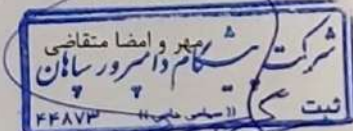 مهر و امضا متقاضی
شرکت پیشگام دامپرور سپاهان
ثبت ((سهامی خاص)) ۴۴۸۷۳